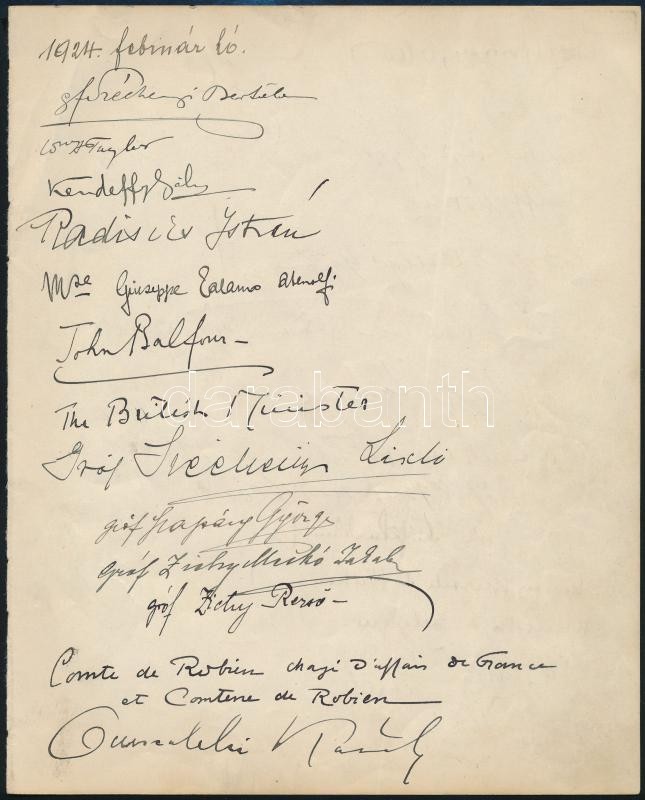 1924. február hó.
gf Széchenyi Bertalan
Wm H Taylor
Kendeffy
István
Mse Giuseppe Talamo Atenolfi
John Balfour
The British Minister
Gróf Széchenyi
gróf Szapáry György
gróf Zichy
gróf Zichy Rezső
Comte de Robien chargé d'affaires de France
et Comtesse de Robien
darabanth